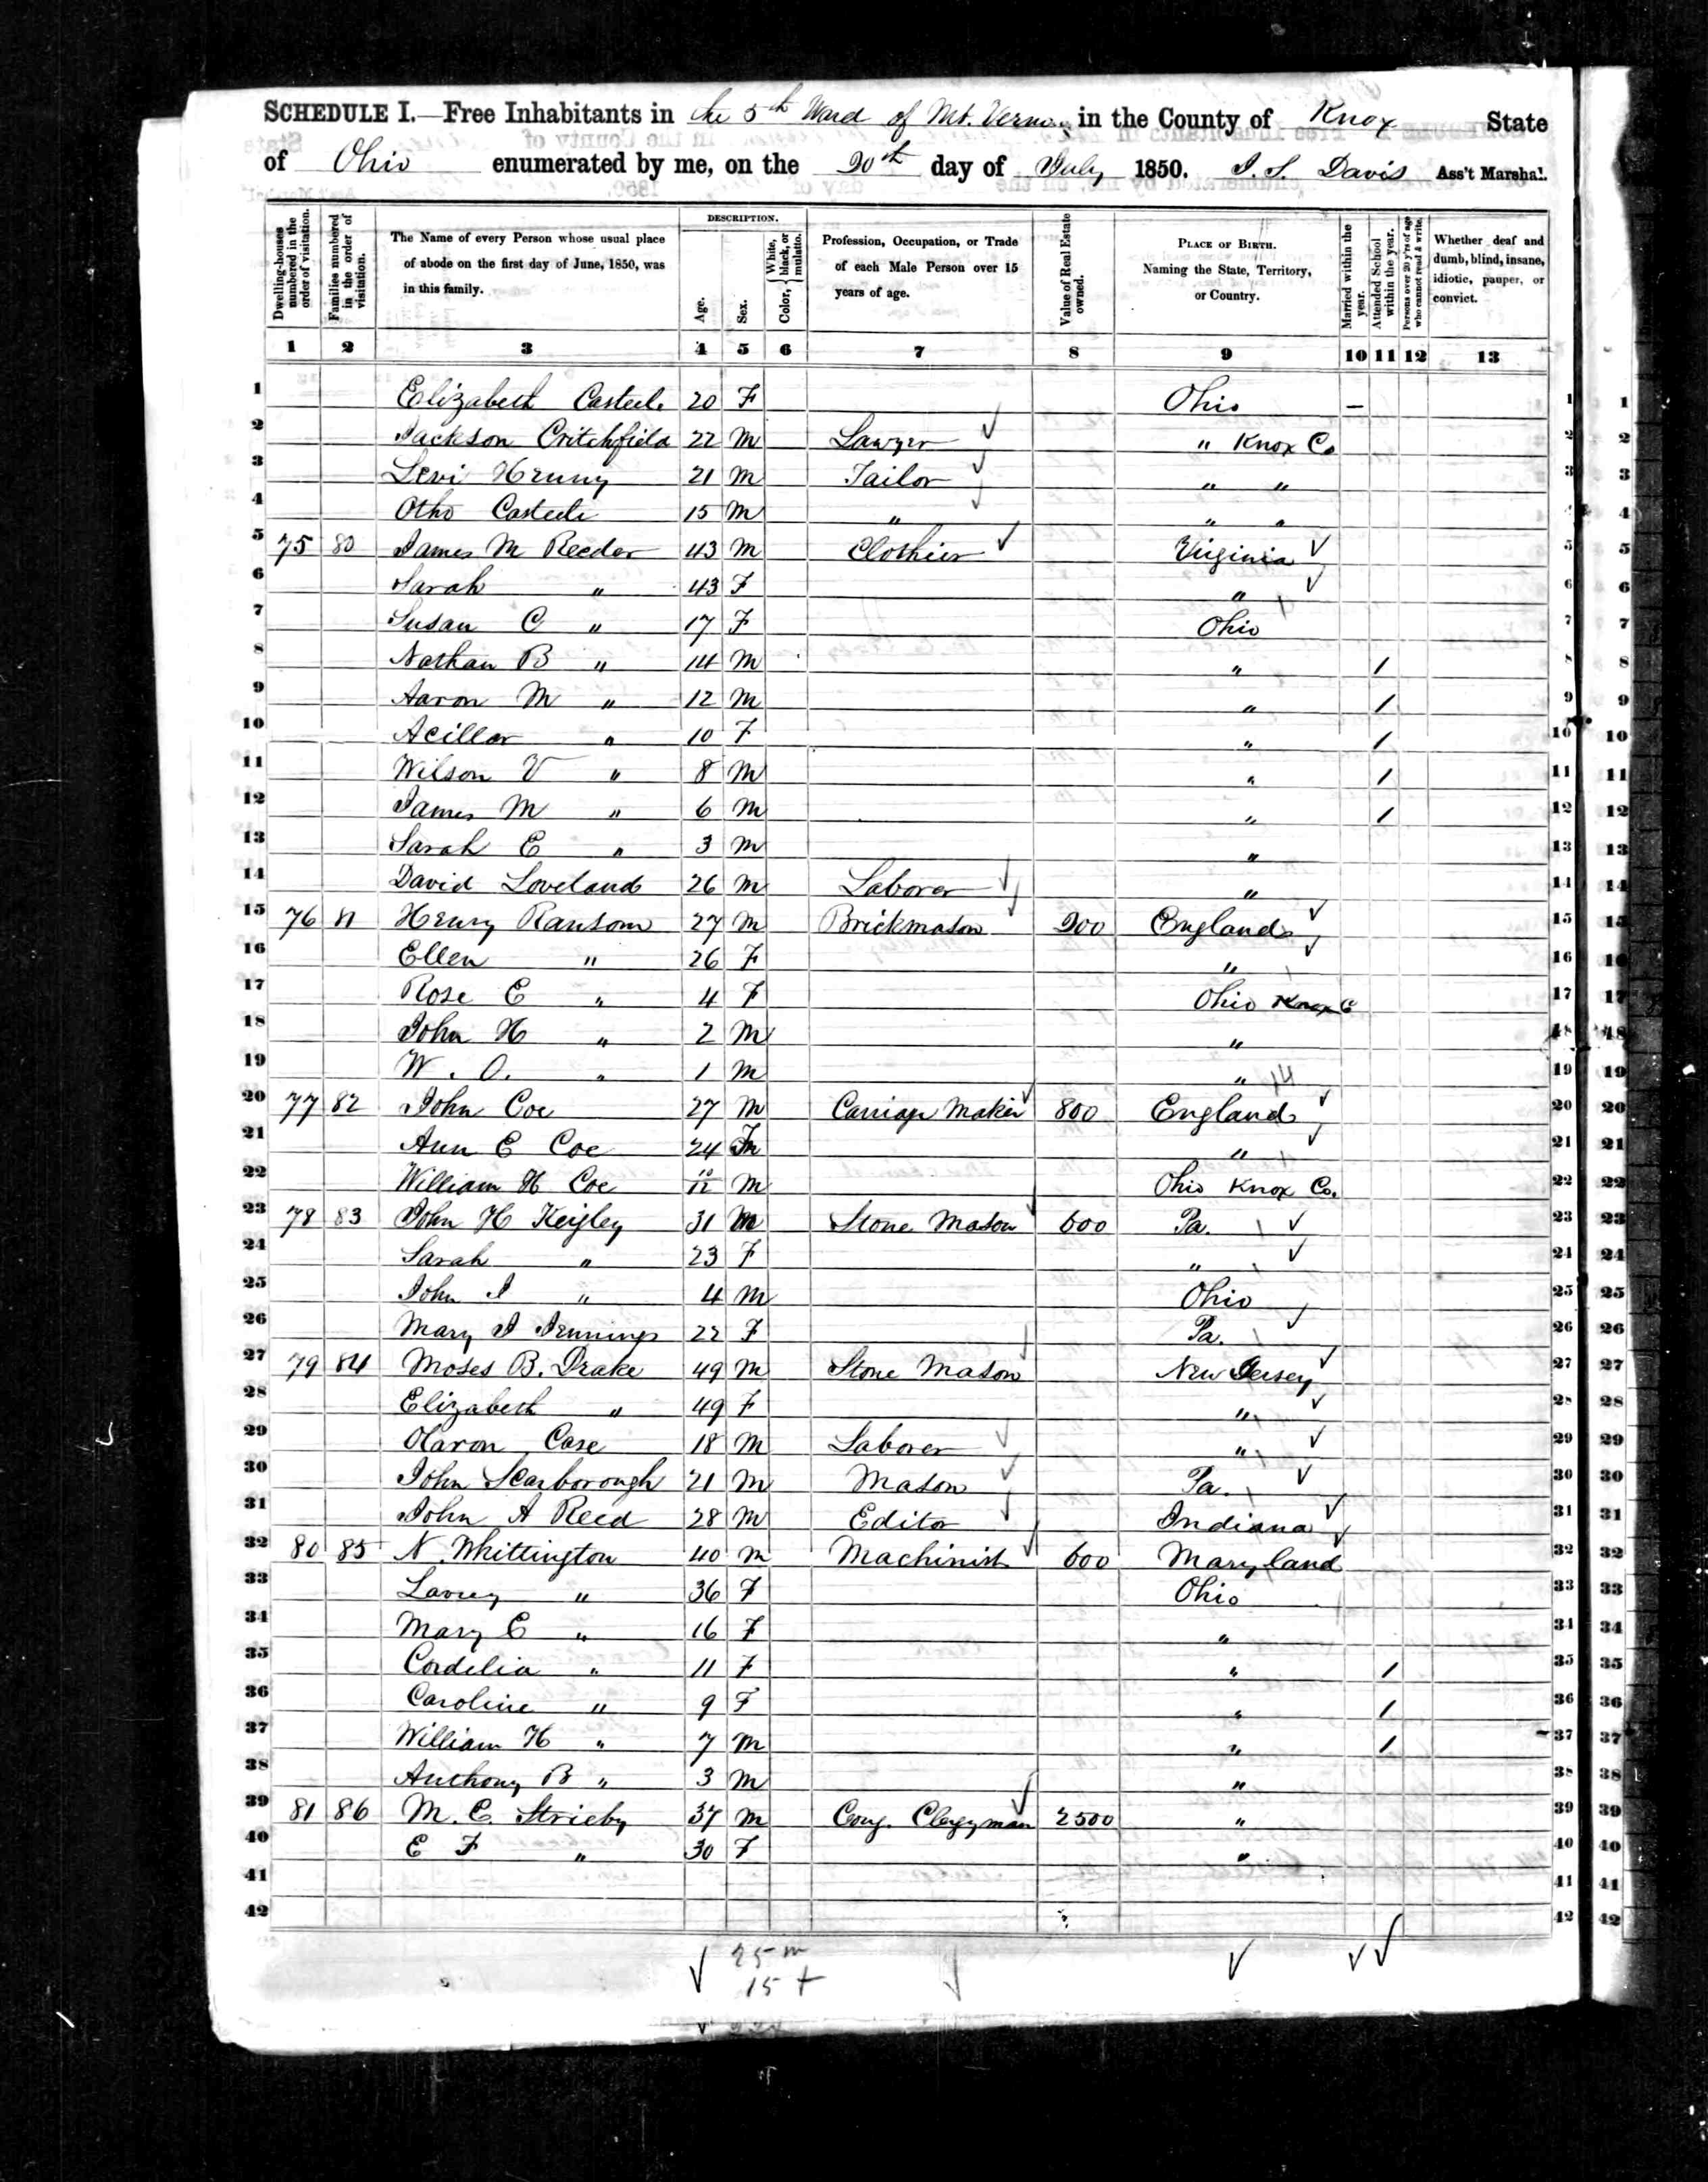 SCHEDULE I.—Free Inhabitants in the 5th Ward of Mt. Vernon in the County of Knox State
of Ohio enumerated by me, on the 20th day of July 1850. J. S. Davis Ass't Marshal.
Dwelling-houses numbered in the order of visitation.
Families numbered in the order of visitation.
The Name of every Person whose usual place of abode on the first day of June, 1850, was in this family.
DESCRIPTION.
Age.
Sex.
Color, White, black, or mulatto.
Profession, Occupation, or Trade of each Male Person over 15 years of age.
Value of Real Estate owned.
PLACE OF BIRTH. Naming the State, Territory, or Country.
Married within the year.
Attended School within the year.
Persons over 20 y'rs of age who cannot read & write.
Whether deaf and dumb, blind, insane, idiotic, pauper, or convict.
1 2 3 4 5 6 7 8 9 10 11 12 13
1 Elizabeth Casteel 20 F Ohio — 1
2 Jackson Critchfield 22 M Lawyer " Knox Co 2
3 Levi Henry 21 M Tailor " " 3
4 Otho Casteele 15 M " " " 4
5 75 80 James M Reeder 43 M Clothier Virginia 5
6 Sarah " 43 F " 6
7 Susan C " 17 F Ohio 7
8 Nathan B " 14 M " / 8
9 Aaron M " 12 M " / 9
10 Acillar " 10 F " / 10
11 Wilson V " 8 M " / 11
12 James M " 6 M " / 12
13 Sarah E " 3 M " 13
14 David Loveland 26 M Laborer " 14
15 76 81 Henry Ransom 27 M Brickmason 200 England 15
16 Ellen " 26 F " 16
17 Rose E " 4 F Ohio Knox C 17
18 John H " 2 M " 18
19 W. O. " 1 M " 14 19
20 77 82 John Coe 27 M Carriage Maker 800 England 20
21 Ann E Coe 24 F " 21
22 William H Coe 10/12 M Ohio Knox Co. 22
23 78 83 John H Keigley 31 M Stone Mason 600 Pa. 23
24 Sarah " 23 F " 24
25 John J " 4 M Ohio 25
26 Mary J Jennings 22 F Pa. 26
27 79 84 Moses B. Drake 49 M Stone Mason New Jersey 27
28 Elizabeth " 49 F " 28
29 Oaron Case 18 M Laborer " 29
30 John Scarborough 21 M Mason Pa. 30
31 John A Reed 28 M Editor Indiana 31
32 80 85 N. Whittington 40 M Machinist 600 Maryland 32
33 " 36 F Ohio 33
34 Mary E " 16 F " 34
35 Cordelia " 11 F " / 35
36 Caroline " 9 F " / 36
37 William H " 7 M " / 37
38 Anthony B " 3 M " 38
39 81 86 M. E. Strieby 37 M Cong. Clergyman 2500 " 39
40 E F " 30 F " 40
41 41
42 42
25 m
15 f